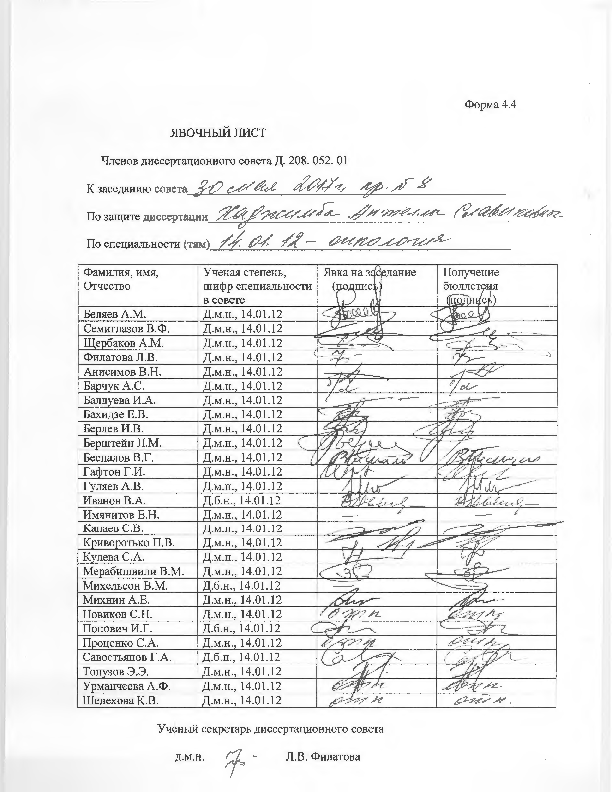 Форма 4.4
ЯВОЧНЫЙ ЛИСТ
Членов диссертационного совета Д. 208. 052. 01
К заседанию совета 30 мая 2017 г. пр. № 8
По защите диссертации Наджимба Анжелы Славиковны
По специальности (там) 14.01.12 – онкология
Фамилия, имя, Отчество Ученая степень, шифр специальности в совете Явка на заседание (подпись) Получение бюллетеня (подпись)
Беляев А.М. Д.м.н., 14.01.12
Семиглазов В.Ф. Д.м.н., 14.01.12
Щербаков А.М. Д.м.н., 14.01.12
Филатова Л.В. Д.м.н., 14.01.12
Анисимов В.Н. Д.м.н., 14.01.12
Барчук А.С. Д.м.н., 14.01.12
Балдуева И.А. Д.м.н., 14.01.12
Бахидзе Е.В. Д.м.н., 14.01.12
Берлев И.В. Д.м.н., 14.01.12
Берштейн Л.М. Д.м.н., 14.01.12
Беспалов В.Г. Д.м.н., 14.01.12
Гафтон Г.И. Д.м.н., 14.01.12
Гуляев А.В. Д.м.н., 14.01.12
Иванов В.А. Д.б.н., 14.01.12
Имянитов Е.Н. Д.м.н., 14.01.12
Канаев С.В. Д.м.н., 14.01.12
Криворотько П.В. Д.м.н., 14.01.12
Кулева С.А. Д.м.н., 14.01.12
Мерабишвили В.М. Д.м.н., 14.01.12
Михельсон В.М. Д.б.н., 14.01.12
Михнин А.Е. Д.м.н., 14.01.12
Новиков С.Н. Д.м.н., 14.01.12
Попович И.Г. Д.б.н., 14.01.12
Проценко С.А. Д.м.н., 14.01.12
Савостьянов Г.А. Д.б.н., 14.01.12
Топузов Э.Э. Д.м.н., 14.01.12
Урманчеева А.Ф. Д.м.н., 14.01.12
Шелехова К.В. Д.м.н., 14.01.12
Ученый секретарь диссертационного совета
д.м.н. Л.В. Филатова